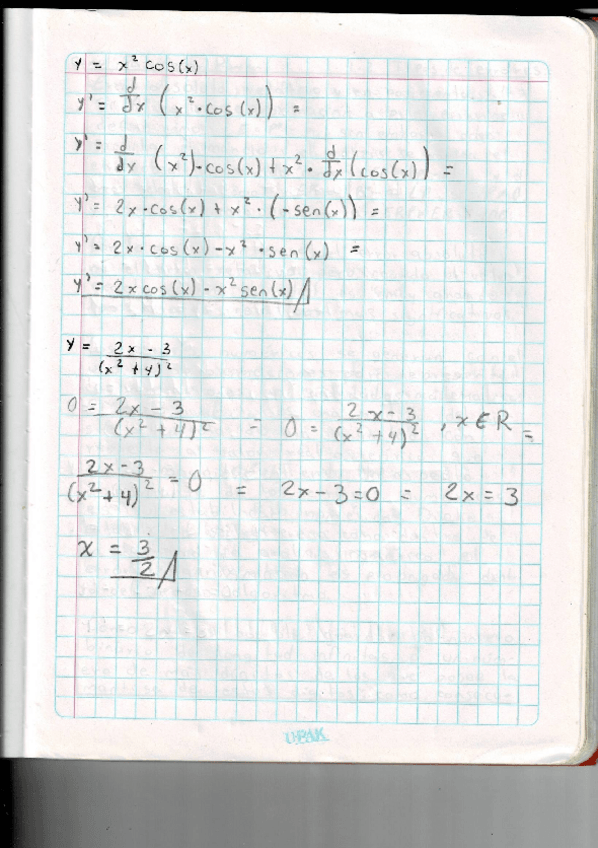 y = x² cos(x)
y' = d/dx (x² · cos (x)) =
y' = d/dx (x²) · cos(x) + x² · d/dx (cos(x)) =
y' = 2x · cos(x) + x² · (-sen(x)) =
y' = 2x · cos(x) - x² · sen(x) =
y' = 2x cos(x) - x² sen(x) //
y = 2x - 3 / (x² + 4)²
0 = 2x - 3 / (x² + 4)² = 0 = 2x - 3 / (x² + 4)² , x ∈ R =
2x - 3 / (x² + 4)² = 0 = 2x - 3 = 0 = 2x = 3
x = 3/2 //